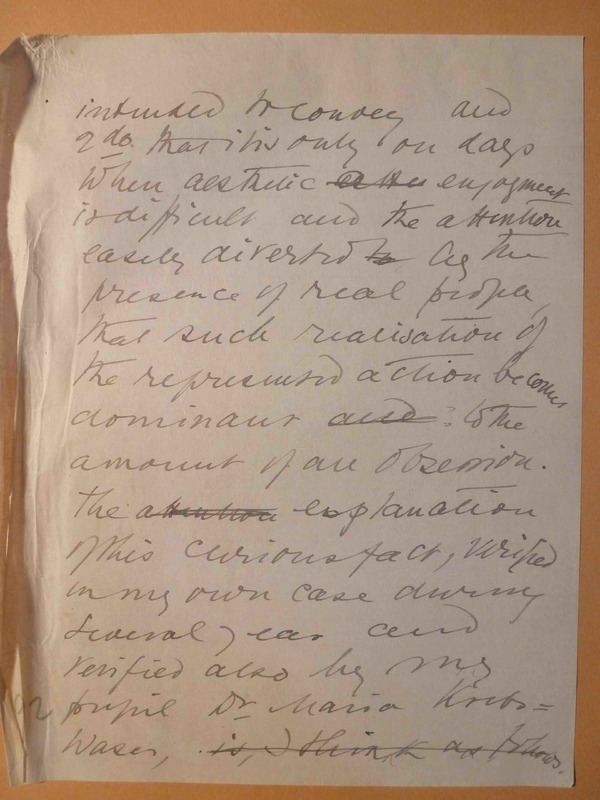 intended to convey and
2do. that it is only on days
when aesthetic enjoyment
is difficult and the attention
easily diverted to by the
presence of real people,
that such realisation of
the represented action becomes
dominant and : to the
amount of an obsession.
The attention explanation
of this curious fact, verified
in my own case during
several years and
verified also by my
pupil Dr Maria Krebs=
Waser, is, I think as follows.